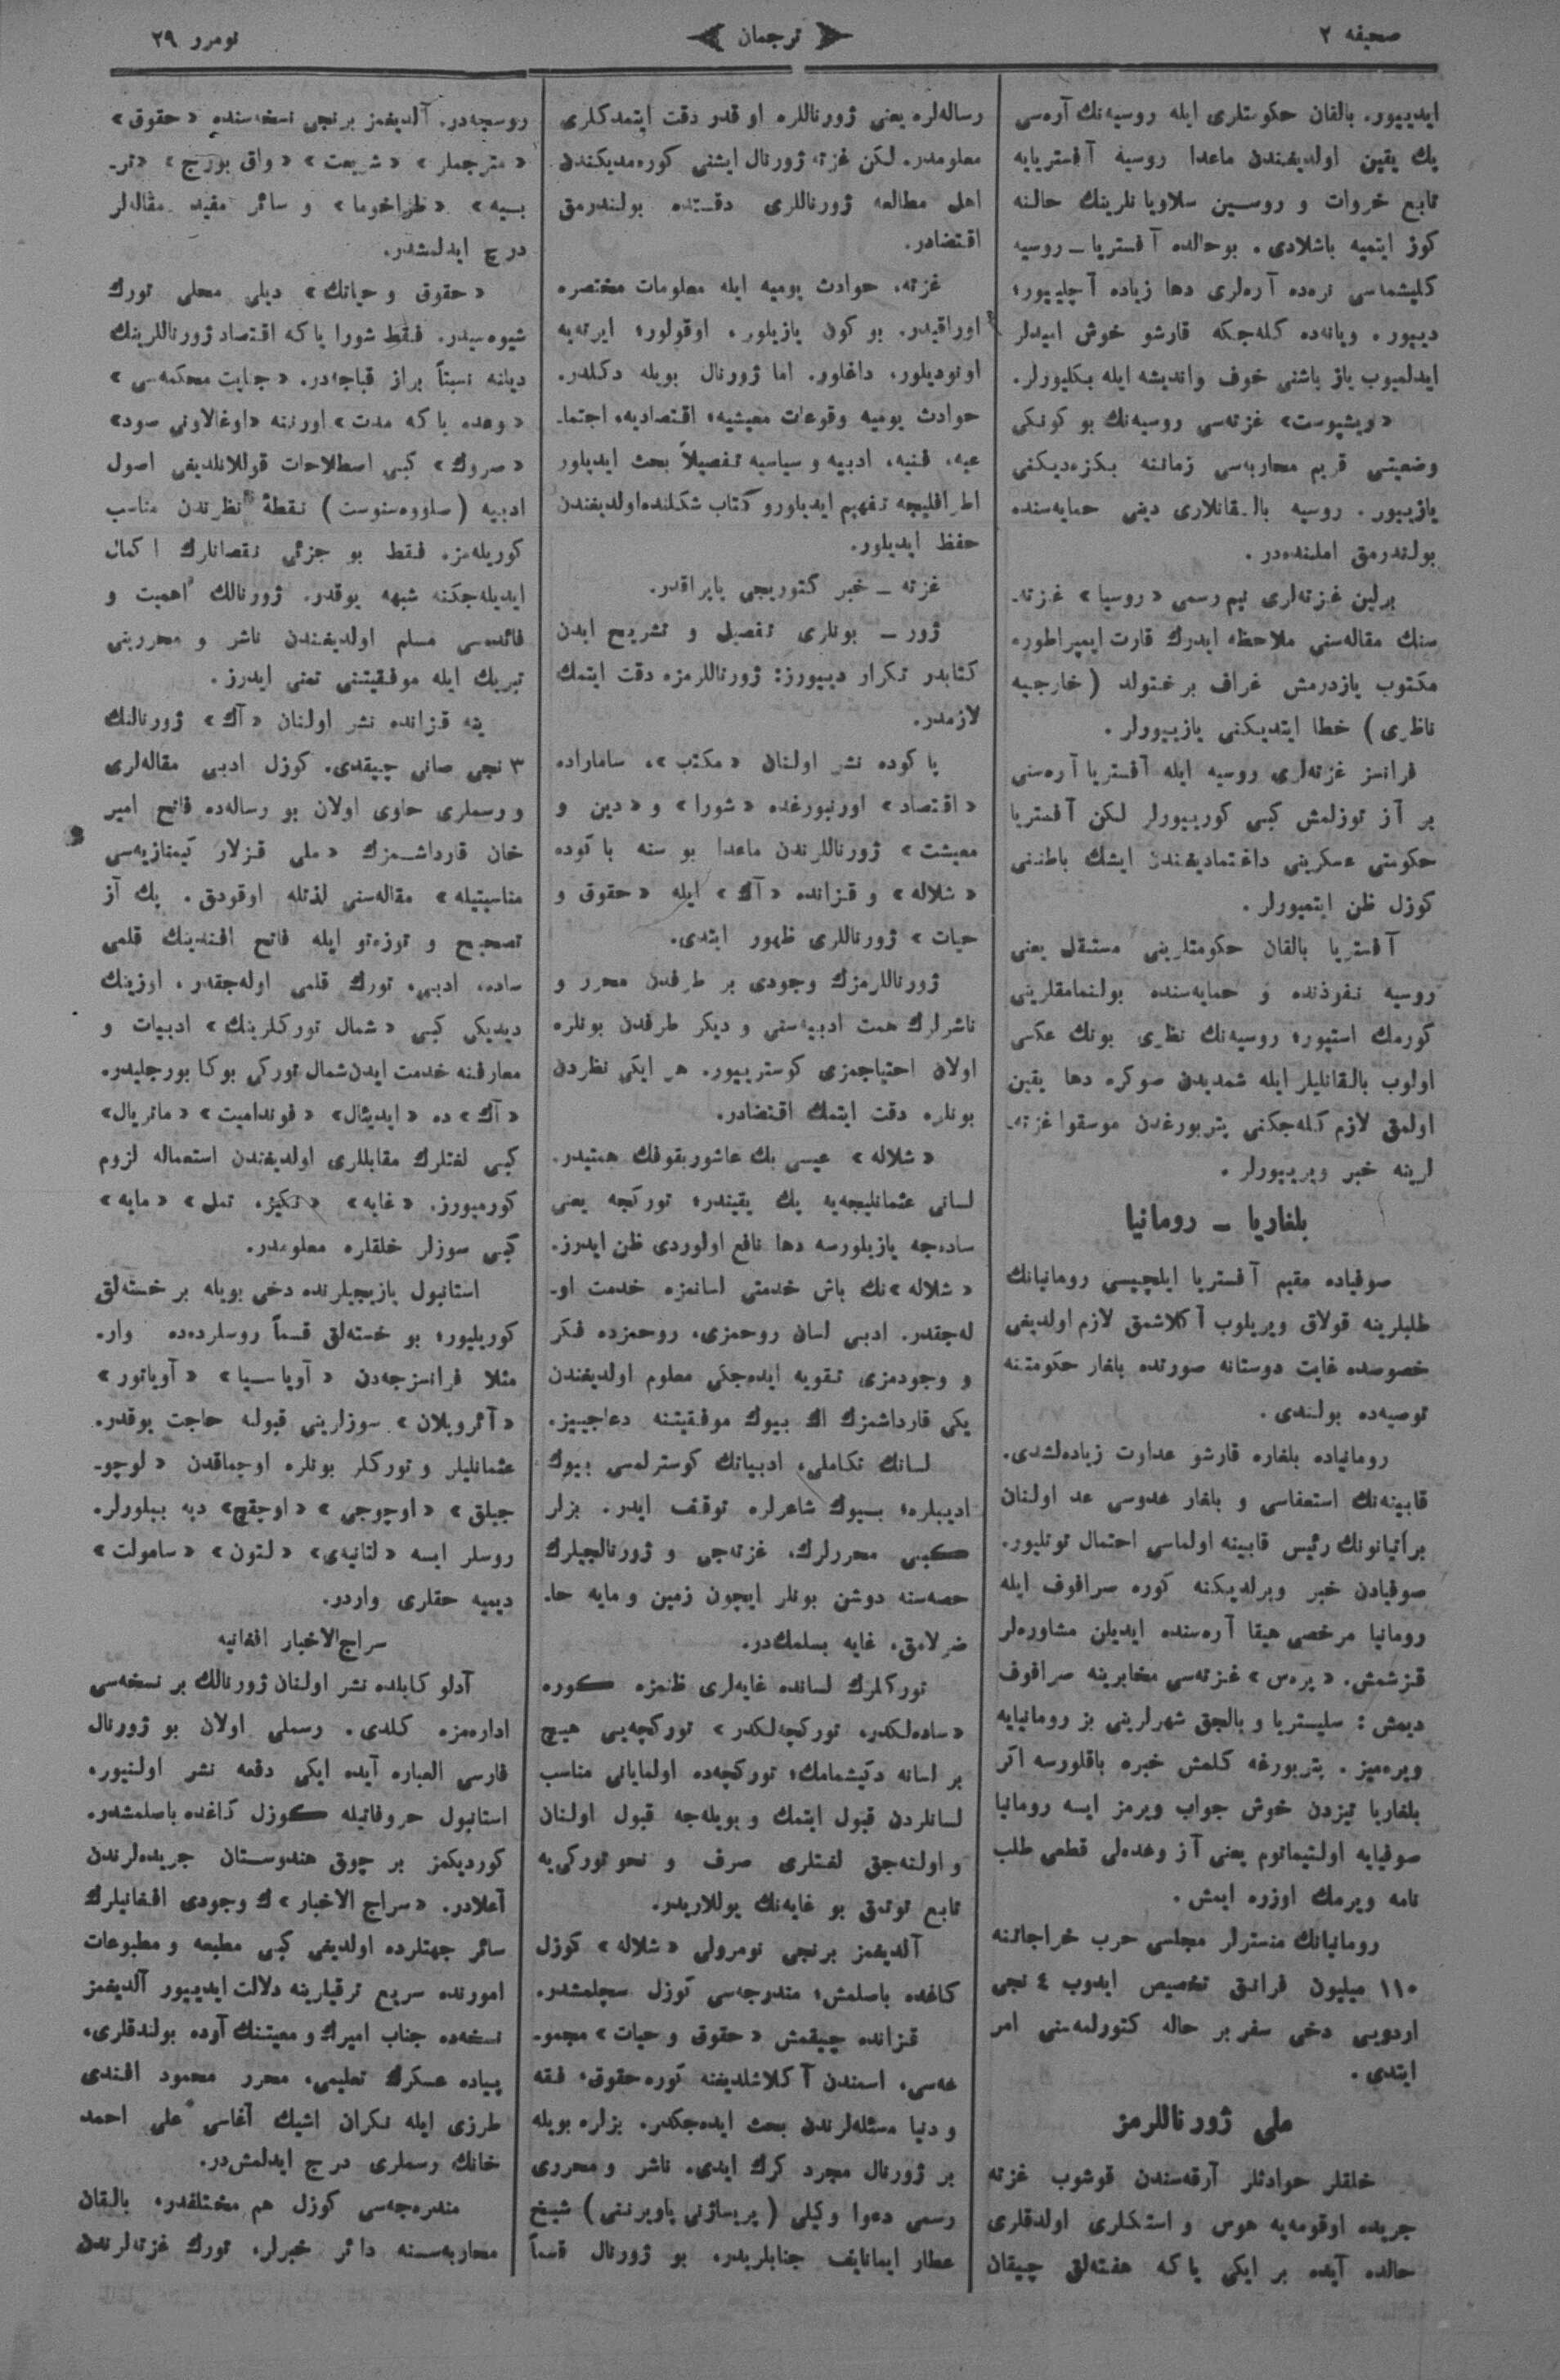 صحیفه ٢
ترجمان
نومرو ٢٩
ایدییور. بالقان حکومتلری ایله روسیه‌نك آره‌سی
پك یقین اولدیغندن ماعدا روسیه آفستریایه
تابع خروات و روسین سلاویانلرینك حالنه
کوز ایتمیه باشلادی. بوحالده آفستریا ـ روسیه
کلیشماسی نره‌ده آره‌لری دها زیاده آچلییور؛
دییور. ویانه‌ده کله‌جکه قارشو خوش امیدلر
ایدلمیوب یاز باشنی خوف واندیشه ایله بکلیورلر.
«ویشپوست» غزته‌سی روسیه‌نك بو کونکی
وضعیتی قریم محاربه‌سی زماننه بکزه‌دیکنی
یازییور. روسیه بالقانلاری دینی حمایه‌سنده
بولندرمق املنده‌در.
برلین غزته‌لری نیم رسمی «روسیا» غزته‌ـ
سنك مقاله‌سنی ملاحظه ایدرك قارت ایمپراطوره
مکتوب یازدرمش غراف برختولد (خارجیه
ناظری) خطا ایتدیکنی یازییورلر.
فرانسز غزته‌لری روسیه ایله آفستریا آره‌سنی
بر آز توزلمش کبی کورییورلر لکن آفستریا
حکومتی عسکرینی داغتمادیغندن ایشك باطننی
کوزل ظن ایتمیورلر.
آفستریا بالقان حکومتلرینی مستقل یعنی
روسیه نفوذنده و حمایه‌سنده بولنمامقلرینی
کورمك استیور؛ روسیه‌نك نظری بونك عکسی
اولوب بالقانلیلر ایله شمدیدن صوکره دها یقین
اولمق لازم کله‌جکنی پتربورغدن موسقوا غزته‌ـ
لرینه خبر ویرییورلر.
بلغاریا ـ رومانیا
صوفیاده مقیم آفستریا ایلچیسی رومانیانك
طلبلرینه قولاق ویریلوب آکلاشمق لازم اولدیغی
خصوصده غایت دوستانه صورتده بلغار حکومتنه
توصیه‌ده بولندی.
رومانیاده بلغاره قارشو عداوت زیاده‌لشدی.
قابینه‌نك استعفاسی و بلغار عدوسی عد اولنان
براتیانونك رئیس قابینه اولماسی احتمال توتلیور.
صوفیادن خبر ویرلدیکنه کوره سرافوف ایله
رومانیا مرخصی هیقا آره‌سنده ایدیلن مشاوره‌لر
قزشمش. «پره‌س» غزته‌سی مخابرینه صرافوف
دیمش : سلیستریا و بالچق شهرلرینی بز رومانیایه
ویره‌میز. پتربورغه کلمش خبره باقلورسه اکر
بلغاریا تیزدن خوش جواب ویرمز ایسه رومانیا
صوفیایه اولتیماتوم یعنی آز وعده‌لی قطعی طلب
نامه ویرمك اوزره ایمش.
رومانیانك منسترلر مجلسی حرب خراجاتنه
١١٠ میلیون فرانق تخصیص ایدوب ٤ نجی
اردویی دخی سفربر حاله کتورلمه‌سنی امر
ایتدی.
ملی ژورناللرمز
خلقلر حوادثلر آرقه‌سندن قوشوب غزته
جریده اوقومه‌یه هوس و استکلری اولدقلری
حالده آیده بر ایکی یاکه هفته‌لق چیقان
رساله‌لره یعنی ژورناللره او قدر دقت ایتمدکلری
معلومدر. لکن غزته ژورنال ایشنی کوره‌مدیکندن
اهل مطالعه ژورناللری دقتنده بولندرمق
اقتضادر.
غزته، حوادث یومیه ایله معلومات مختصره
اوراقیدر. بو کون یازیلور، اوقولور؛ ایرته‌یه
اونودیلور، داغلور. اما ژورنال بویله دکلدر.
حوادث یومیه وقوعات معیشیه؛ اقتصادیه، اجتماـ
عیه، فنیه، ادبیه و سیاسیه تفصیلاً بحث ایدیلور
اطرافلیجه تفهیم ایدیلورو کتاب شکلنده‌اولدیغندن
حفظ ایدیلور.
غزته ـ خبر کتوریجی یاپراقدر.
ژور ـ بونلری تفصیل و تشریح ایدن
کتابدر تکرار دییورز: ژورناللرمزه دقت ایتمك
لازمدر.
باکوده نشر اولنان «مکتب»، ساماراده
«اقتصاد» اورنبورغده «شورا» و «دین و
معیشت» ژورناللرندن ماعدا بو سنه باکوده
«شلاله» و قزانده «آك» ایله «حقوق و
حیات» ژورناللری ظهور ایتدی.
ژورناللرمزك وجودی بر طرفدن محرر و
ناشرلرك همت ادبیه‌سنی و دیکر طرفدن بونلره
اولان احتیاجمزی کوسترییور. هر ایکی نظردن
بونلره دقت ایتمك اقتضادر.
«شلاله» عیسی بك عاشوربقوفك همتیدر.
لسانی عثمانلیجه‌یه پك یقیندر؛ تورکجه یعنی
ساده‌جه یازیلورسه دها نافع اولوردی ظن ایدرز.
«شلاله»نك باش خدمتی لسانمزه خدمت اوـ
له‌جقدر. ادبی لسان روحمزی، روحمزده فکر
و وجودمزی تقویه ایده‌جکی معلوم اولدیغندن
یکی قارداشمزك اك بیوك موفقیتنه دعاجییز.
لسانك تکاملی، ادبیاتك کوسترلمسی بیوك
ادیبلره؛ بیوك شاعرلره توقف ایدر. بزلر
کبی محررلرك، غزته‌جی و ژورنالجیلرك
حصه‌سنه دوشن بونلر ایچون زمین و مایه حاـ
ضرلامق، غایه بسلمك‌در.
تورکلرك لسانده غایه‌لری ظنمزه کوره
«ساده‌لکدر، تورکچه‌لکدر» تورکچه‌یی هیچ
بر لسانه دکیشمامك؛ تورکچه‌ده اولمایانی مناسب
لسانلردن قبول ایتمك و بویله‌جه قبول اولنان
و اولنه‌جق لغتلری صرف و نحو تورکی‌یه
تابع توتمق بو غایه‌نك یوللاریدر.
آلدیغمز برنجی نومرولی «شلاله» کوزل
کاغده باصلمش؛ مندرجه‌سی کوزل سچلمشدر.
قزانده چیقمش «حقوق و حیات» مجموـ
عه‌سی، اسمندن آکلاشلدیغنه کوره حقوق، فقه
و دنیا مسئله‌لرندن بحث ایده‌جکدر. بزلره بویله
بر ژورنال مجرد کرك ایدی. ناشر و محرری
رسمی دعوا وکیلی (پریساژنی پاویرننی) شیخ
عطار ایمانایف جنابلریدر. بو ژورنال قسماً
روسچه‌در. آلدیغمز برنجی نسخه‌سنده «حقوق»
«مترجملر» «شریعت» «واق بورج» «ترـ
بیه» «طراخوما» و سائر مفید مقاله‌لر
درج ایدلمشدر.
«حقوق و حیاتك» دیلی محلی تورك
شیوه‌سیدر. فقط شورا یاکه اقتصاد ژورناللرینك
دیلنه نسبتاً براز قباجه‌در. «جنایت محکمه‌سی»
«وعده یاکه مدت» اورننه «اوغالاونی صود»
«صروك» کبی اصطلاحات قوللانلدیغی اصول
ادبیه (سلووه‌سنوست) نقطهٔ نظرندن مناسب
کوریله‌مز. فقط بو جزئی نقصانلرك اکمال
ایدیله‌جکنه شبهه یوقدر. ژورنالك اهمیت و
فائده‌سی مسلم اولدیغندن ناشر و محررینی
تبریك ایله موفقیتنی تمنی ایدرز.
ینه قزانده نشر اولنان «آك» ژورنالنك
٣ نجی صانی چیقدی. کوزل ادبی مقاله‌لری
و رسملری حاوی اولان بو رساله‌ده فاتح امیر
خان قارداشمزك «ملی قزلار کیمنازیه‌سی
مناسبتیله» مقاله‌سنی لذتله اوقودق. پك آز
تصحیح و توزه‌تو ایله فاتح افندینك قلمی
ساده، ادبی، تورك قلمی اوله‌جقدر. اوزینك
دیدیکی کبی «شمال تورکلرینك» ادبیات و
معارفنه خدمت ایدن شمال تورکی بوکا بورجلیدر.
«آك» ده «ایدیئال» «فوندامیت» «ماتریال»
کبی لغتلرك مقابللری اولدیغندن استعماله لزوم
کورمیورز. «غایه» «نکیز، تمل» «مایه»
کبی سوزلر خلقلره معلومدر.
استانبول یازیجیلرنده دخی بویله بر خسته‌لق
کوریلیور؛ بو خسته‌لق قسماً روسلرده‌ده وار.
مثلا فرانسزجه‌دن «آویاسیا» «آویاتور»
«آئروپلان» سوزلرینی قبوله حاجت یوقدر.
عثمانلیلر و تورکلر بونلره اوچماقدن «لوچوـ
جیلق» «اوچوجی» «اوچقچ» دیه بیلورلر.
روسلر ایسه «لتانیه‌ی» «لتون» «سامولت»
دیمیه حقلری واردر.
سراج‌الاخبار افغانیه
آدلو کابلده نشر اولنان ژورنالك بر نسخه‌سی
اداره‌مزه کلدی. رسملی اولان بو ژورنال
فارسی العباره آیده ایکی دفعه نشر اولنیور.
استانبول حروفاتیله کوزل کاغده باصلمشدر.
کوردیکمز بر چوق هندوستان جریده‌لرندن
آعلادر. «سراج الاخبار»ك وجودی افغانیلرك
سائر جهتلرده اولدیغی کبی مطبعه و مطبوعات
امورنده سریع ترقیلرینه دلالت ایدییور آلدیغمز
نسخه‌ده جناب امیرك و معیتنك آوده بولندقلری،
پیاده عسکرك تعلیمی، محرر محمود افندی
طرزی ایله نکران اشیك آغاسی علی احمد
خانك رسملری درج ایدلمش‌در.
مندره‌جه‌سی کوزل هم مختلفدر، بالقان
محاربه‌سنه دائر خبرلر، تورك غزته‌لرندن